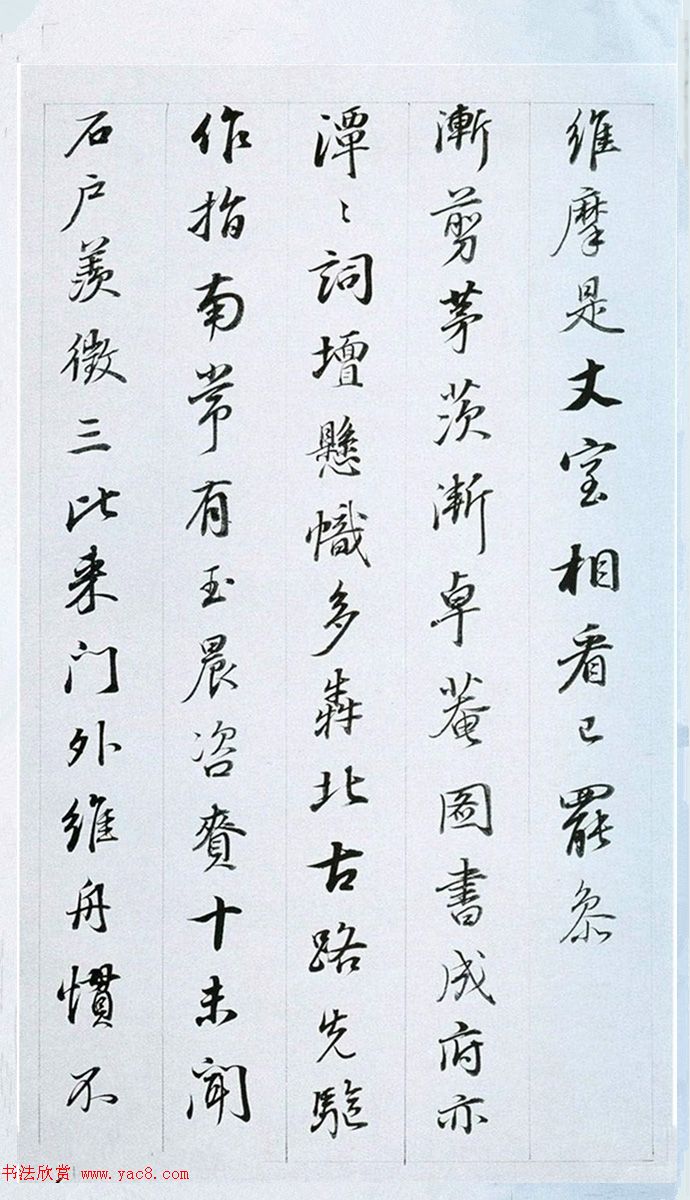 維摩是丈室相看已罷叅
漸剪茅茨漸卓菴圖書成府亦
潭〻詞壇懸幟多犇北古路先駈
作指南常有玉晨咨賚十未聞
石户羨徵三比来门外維舟慣不
书法欣赏 www.yac8.com